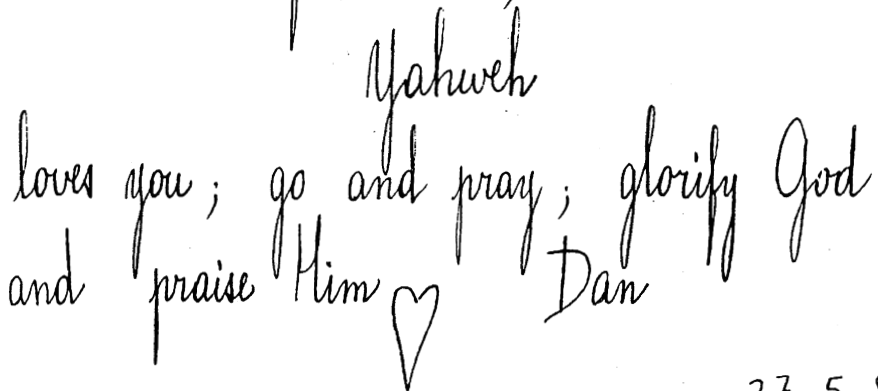 Yahweh
loves you; go and pray; glorify God
and praise Him Dan